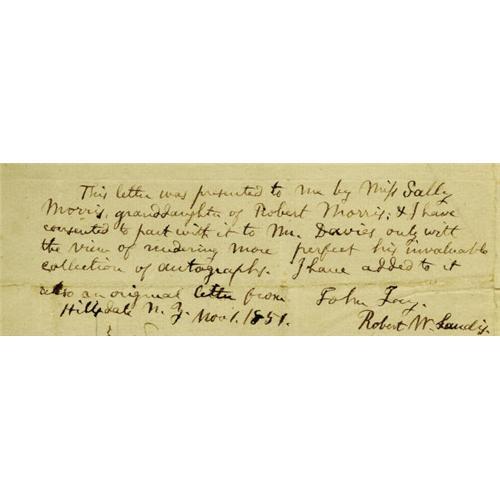 This letter was presented to me by Miss Sally
Morris, granddaughter of Robert Morris; & I have
consented to part with it to Mr. Davies only with
the view of rendering more perfect his invaluable
collection of autographs. I have added to it
also an original letter from John Jay.
Hillsdale N. Y. Nov 1. 1851.
Robert W. Landis.